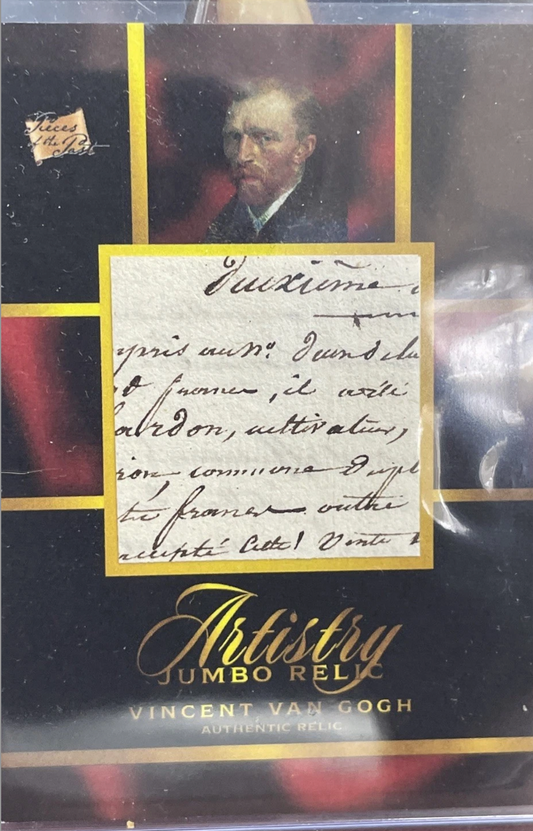 Pieces
of the Past
deuxième
au N.º
et france, il a été
ardon, cultivateur,
commune
france outre
accepté Cette! Vente
Artistry
JUMBO RELIC
VINCENT VAN GOGH
AUTHENTIC RELIC